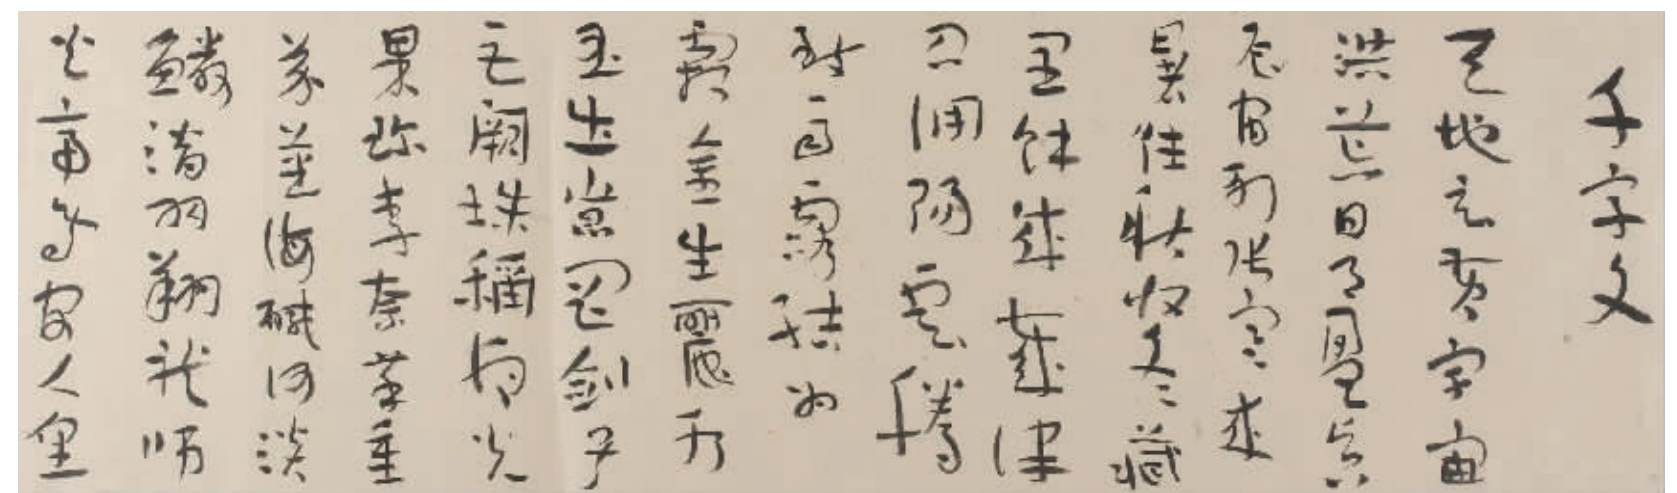 千字文
天地玄黃宇宙
洪荒日月盈昃
辰宿列張寒來
暑往秋收冬藏
閏餘成歲律
呂調陽雲騰
致雨露結為
霜金生麗水
玉出崑岡劍号
巨闕珠稱夜光
果珍李柰菜重
芥薑海鹹河淡
鱗潛羽翔龍師
火帝鳥官人皇